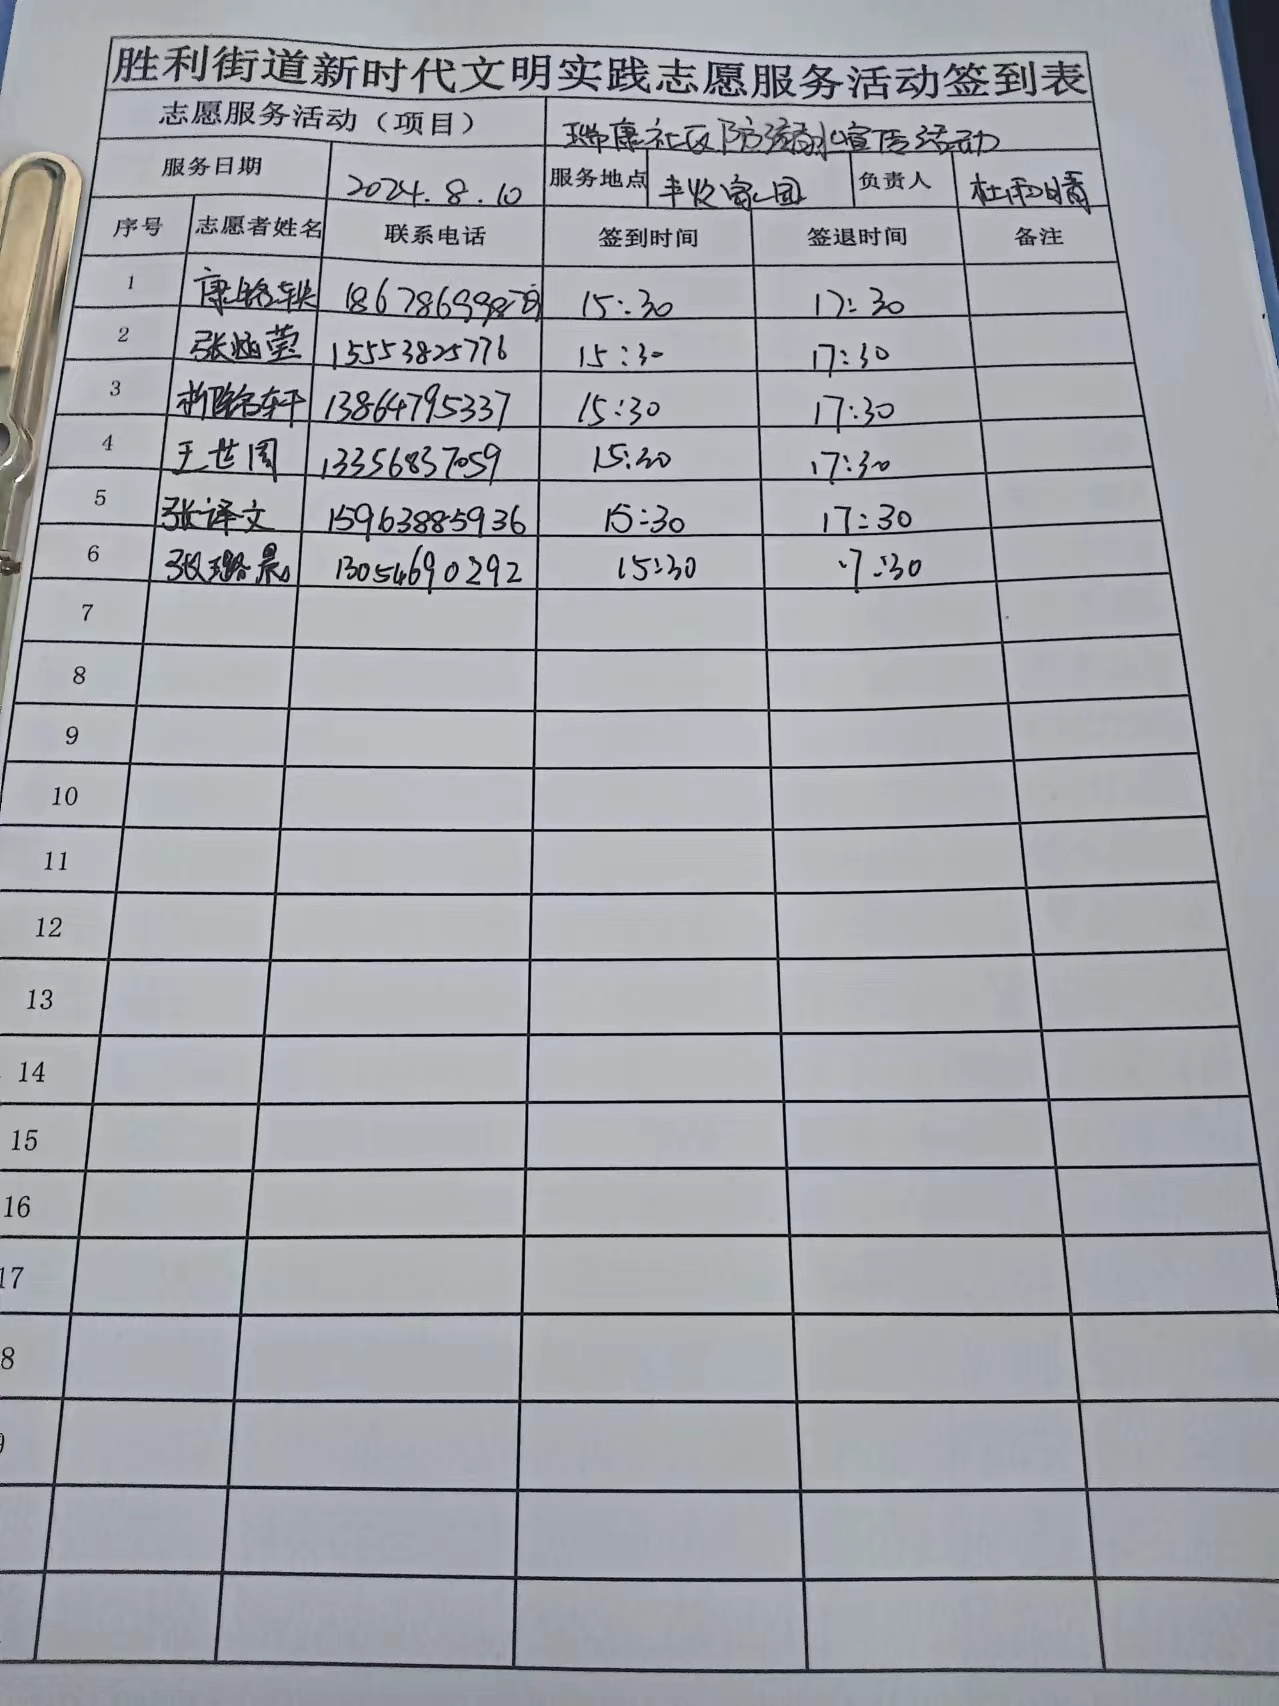 胜利街道新时代文明实践志愿服务活动签到表
志愿服务活动（项目） 瑞康社区防溺水宣传活动
服务日期 2024.8.10 服务地点 丰收家园 负责人 杜雨晴
序号 志愿者姓名 联系电话 签到时间 签退时间 备注
1 康 15:30 17:30
2 张涵莹 15553825776 15:30 17:30
3 13864795337 15:30 17:30
4 王世周 13356837059 15:30 17:30
5 张译文 15963885936 15:30 17:30
6 张璐晨 13054690292 15:30 17:30
7
8
9
10
11
12
13
14
15
16
17
8
9